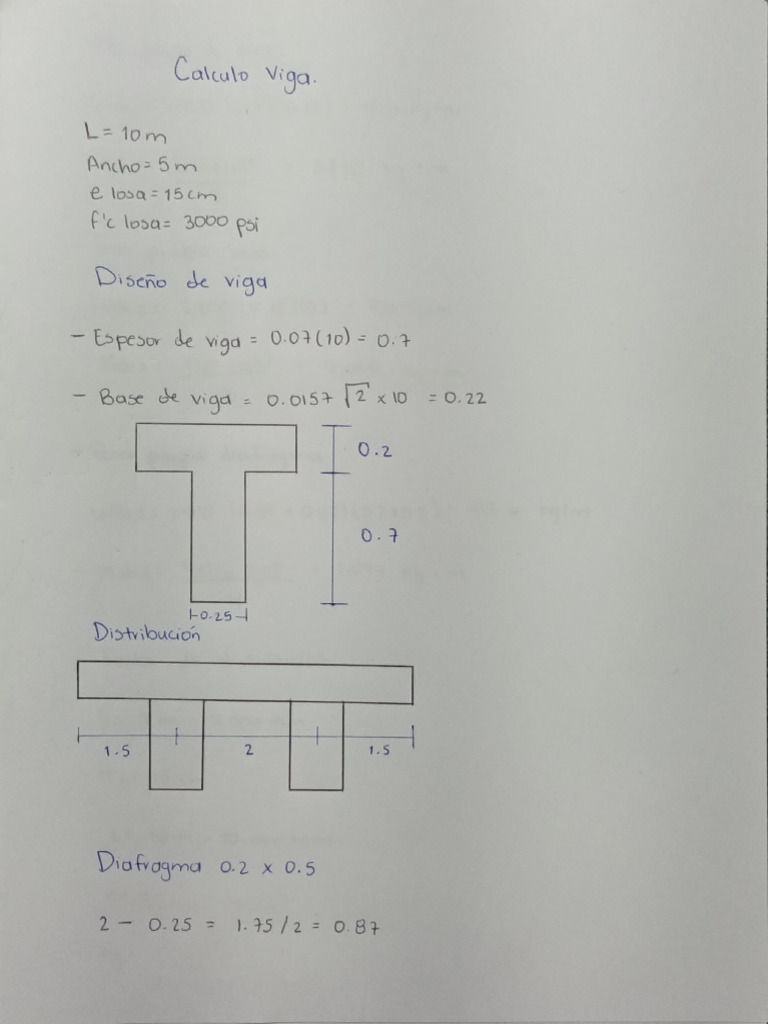 Calculo Viga.
L = 10 m
Ancho = 5 m
e losa = 15 cm
f'c losa = 3000 psi
Diseño de viga
- Espesor de viga = 0.07 (10) = 0.7
- Base de viga = 0.0157 √2 x 10 = 0.22
0.2
0.7
0.25
Distribución
1.5 2 1.5
Diafragma 0.2 x 0.5
2 - 0.25 = 1.75 / 2 = 0.87